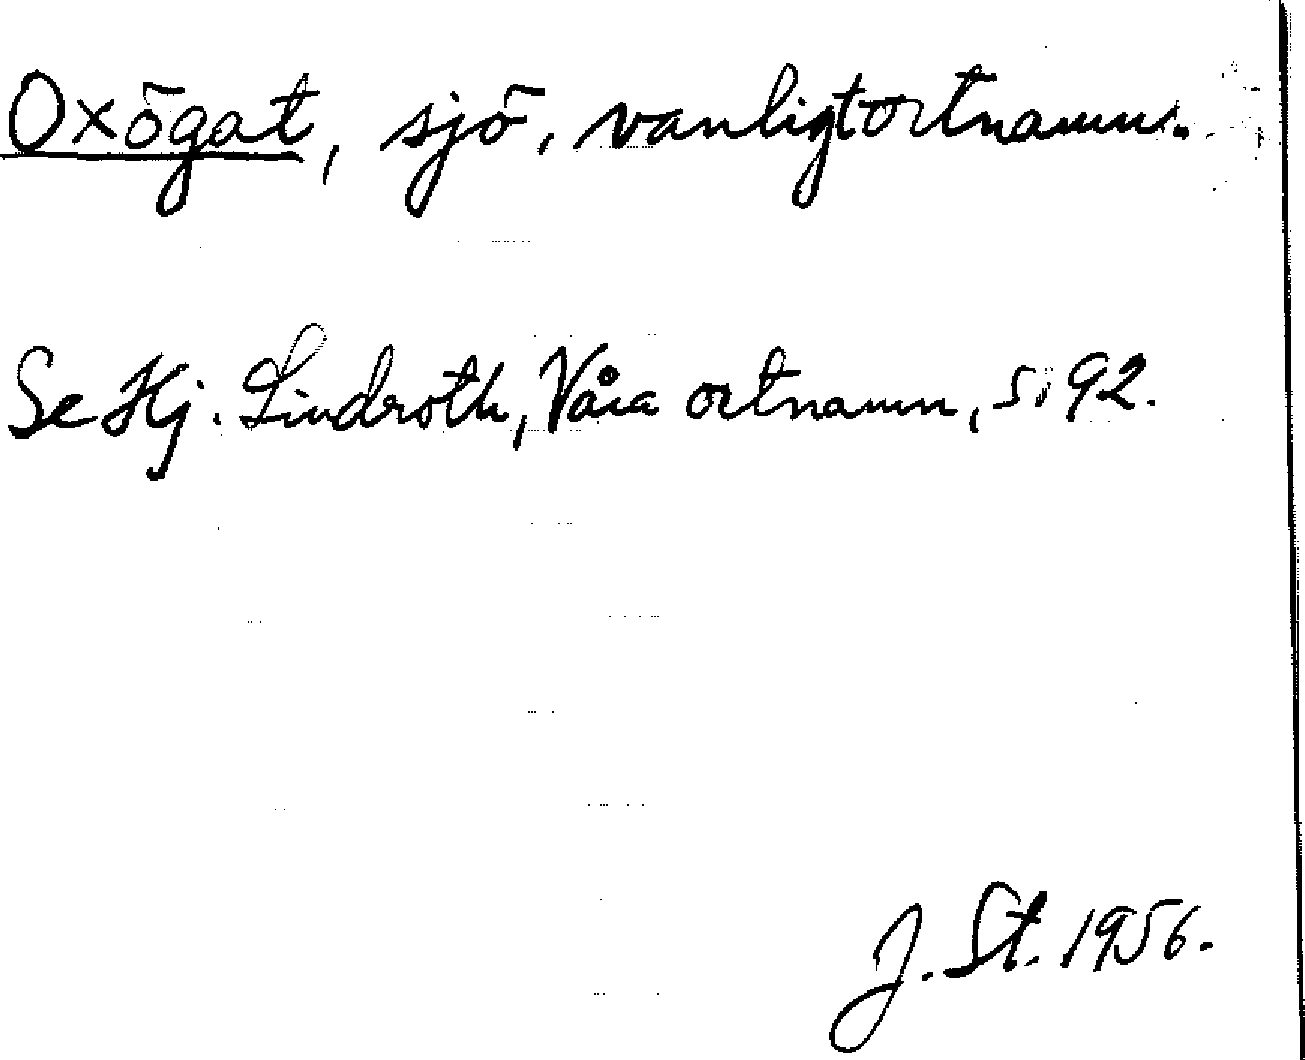 Oxögat, sjö, vanligt ortnamn.
Se Hj. Lindroth, Våra ortnamn, s. 92.
J. St. 1956.